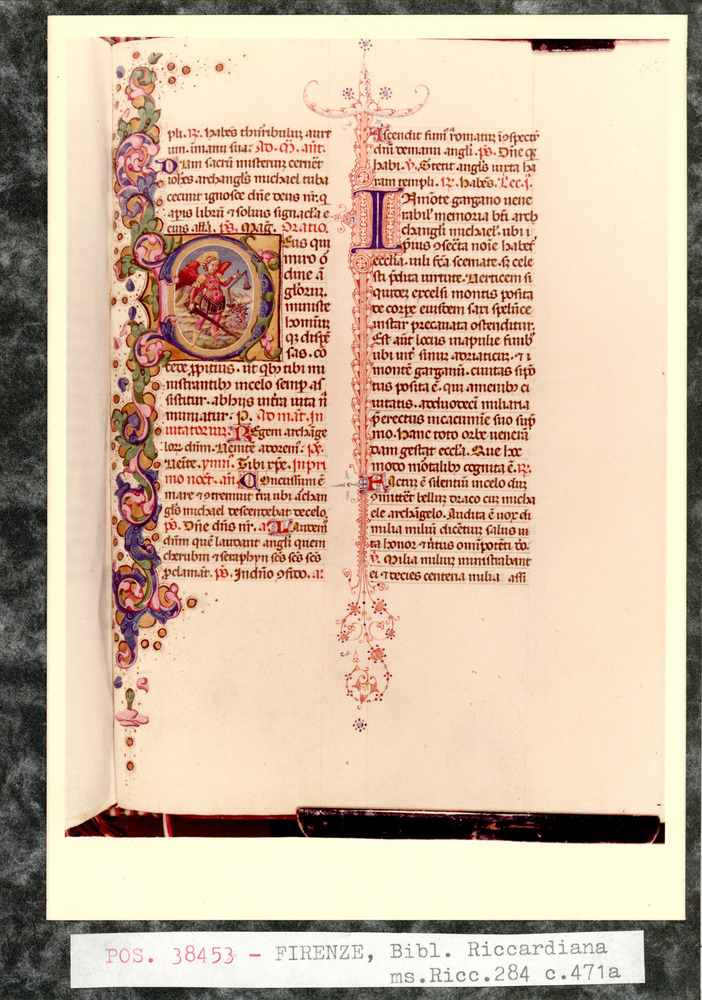 pli. R. habes thuribulum aure
um. in manu sua: Ad. m. ant.
Dum sacrum misterium cernet
iohes archangls michael tuba
cecinit ignosce dne deus nr. q
apis librum et soluis signacla e
ius alla. ps. Mag. Oratio.
Deus qui
miro o
dine a
glorum
ministe
hominum
q; dispe
sas. co
cede ppitius. ut qb; tibi mi
nistrantib; in celo semp as
sistitur. ab hijs in tra uita n
muniatur. P. Ad mat. In
uitatorium. Regem archage
lor dnm. Uenite adorem. ps.
Uenite. ymn. Tibi xpe. In pri
mo noct. an. Concussum e
mare et contremuit tra ubi achan
gls michael descendebat de celo.
ps. Dne dns nr. a. Laudem
dnm que laudant angli quem
cherubin et seraphyn scs scs scs
pclamat. ps. In dno confido. a:
Ascendit fum aromatum in conspectu
dni de manu angli. ps. Dne q
habi. V. Stetit angls iuxta ha
ram templi. R. habes. Lec. i.
In mote gargano uene
rabil' memoria bti arch
changli michael'. ubi i
ipius consecta noie habet
ecclia. uili fca scemate. s; cele
sti pdita uirtute. Uerticem si
quidez excelsi montis posita
de corpe eiusdem saxi spelunce
instar precauata ostenditur.
Est aut locus in apulie finib;
ubi int sinum adriaticum. et
monte garganum. ciuitas sipo
tus posita e. que a menib; ci
uitatis. ad duodeci miliaria
perectus in cacumine suo sup
mo. hanc toto orbe uenera
dam gestat eccla. Que hoc
modo motalib; cognita e. R.
Factum e silentium in celo dum
committet bellum draco cum micha
ele archangelo. Audita e uox
milia milium dicetium salus in
ta honor et uirtus omipoteti do.
V. Milia milium ministrabant
ei et decies centena milia assi
POS. 38453 - FIRENZE, Bibl. Riccardiana
ms.Ricc.284 c.471a